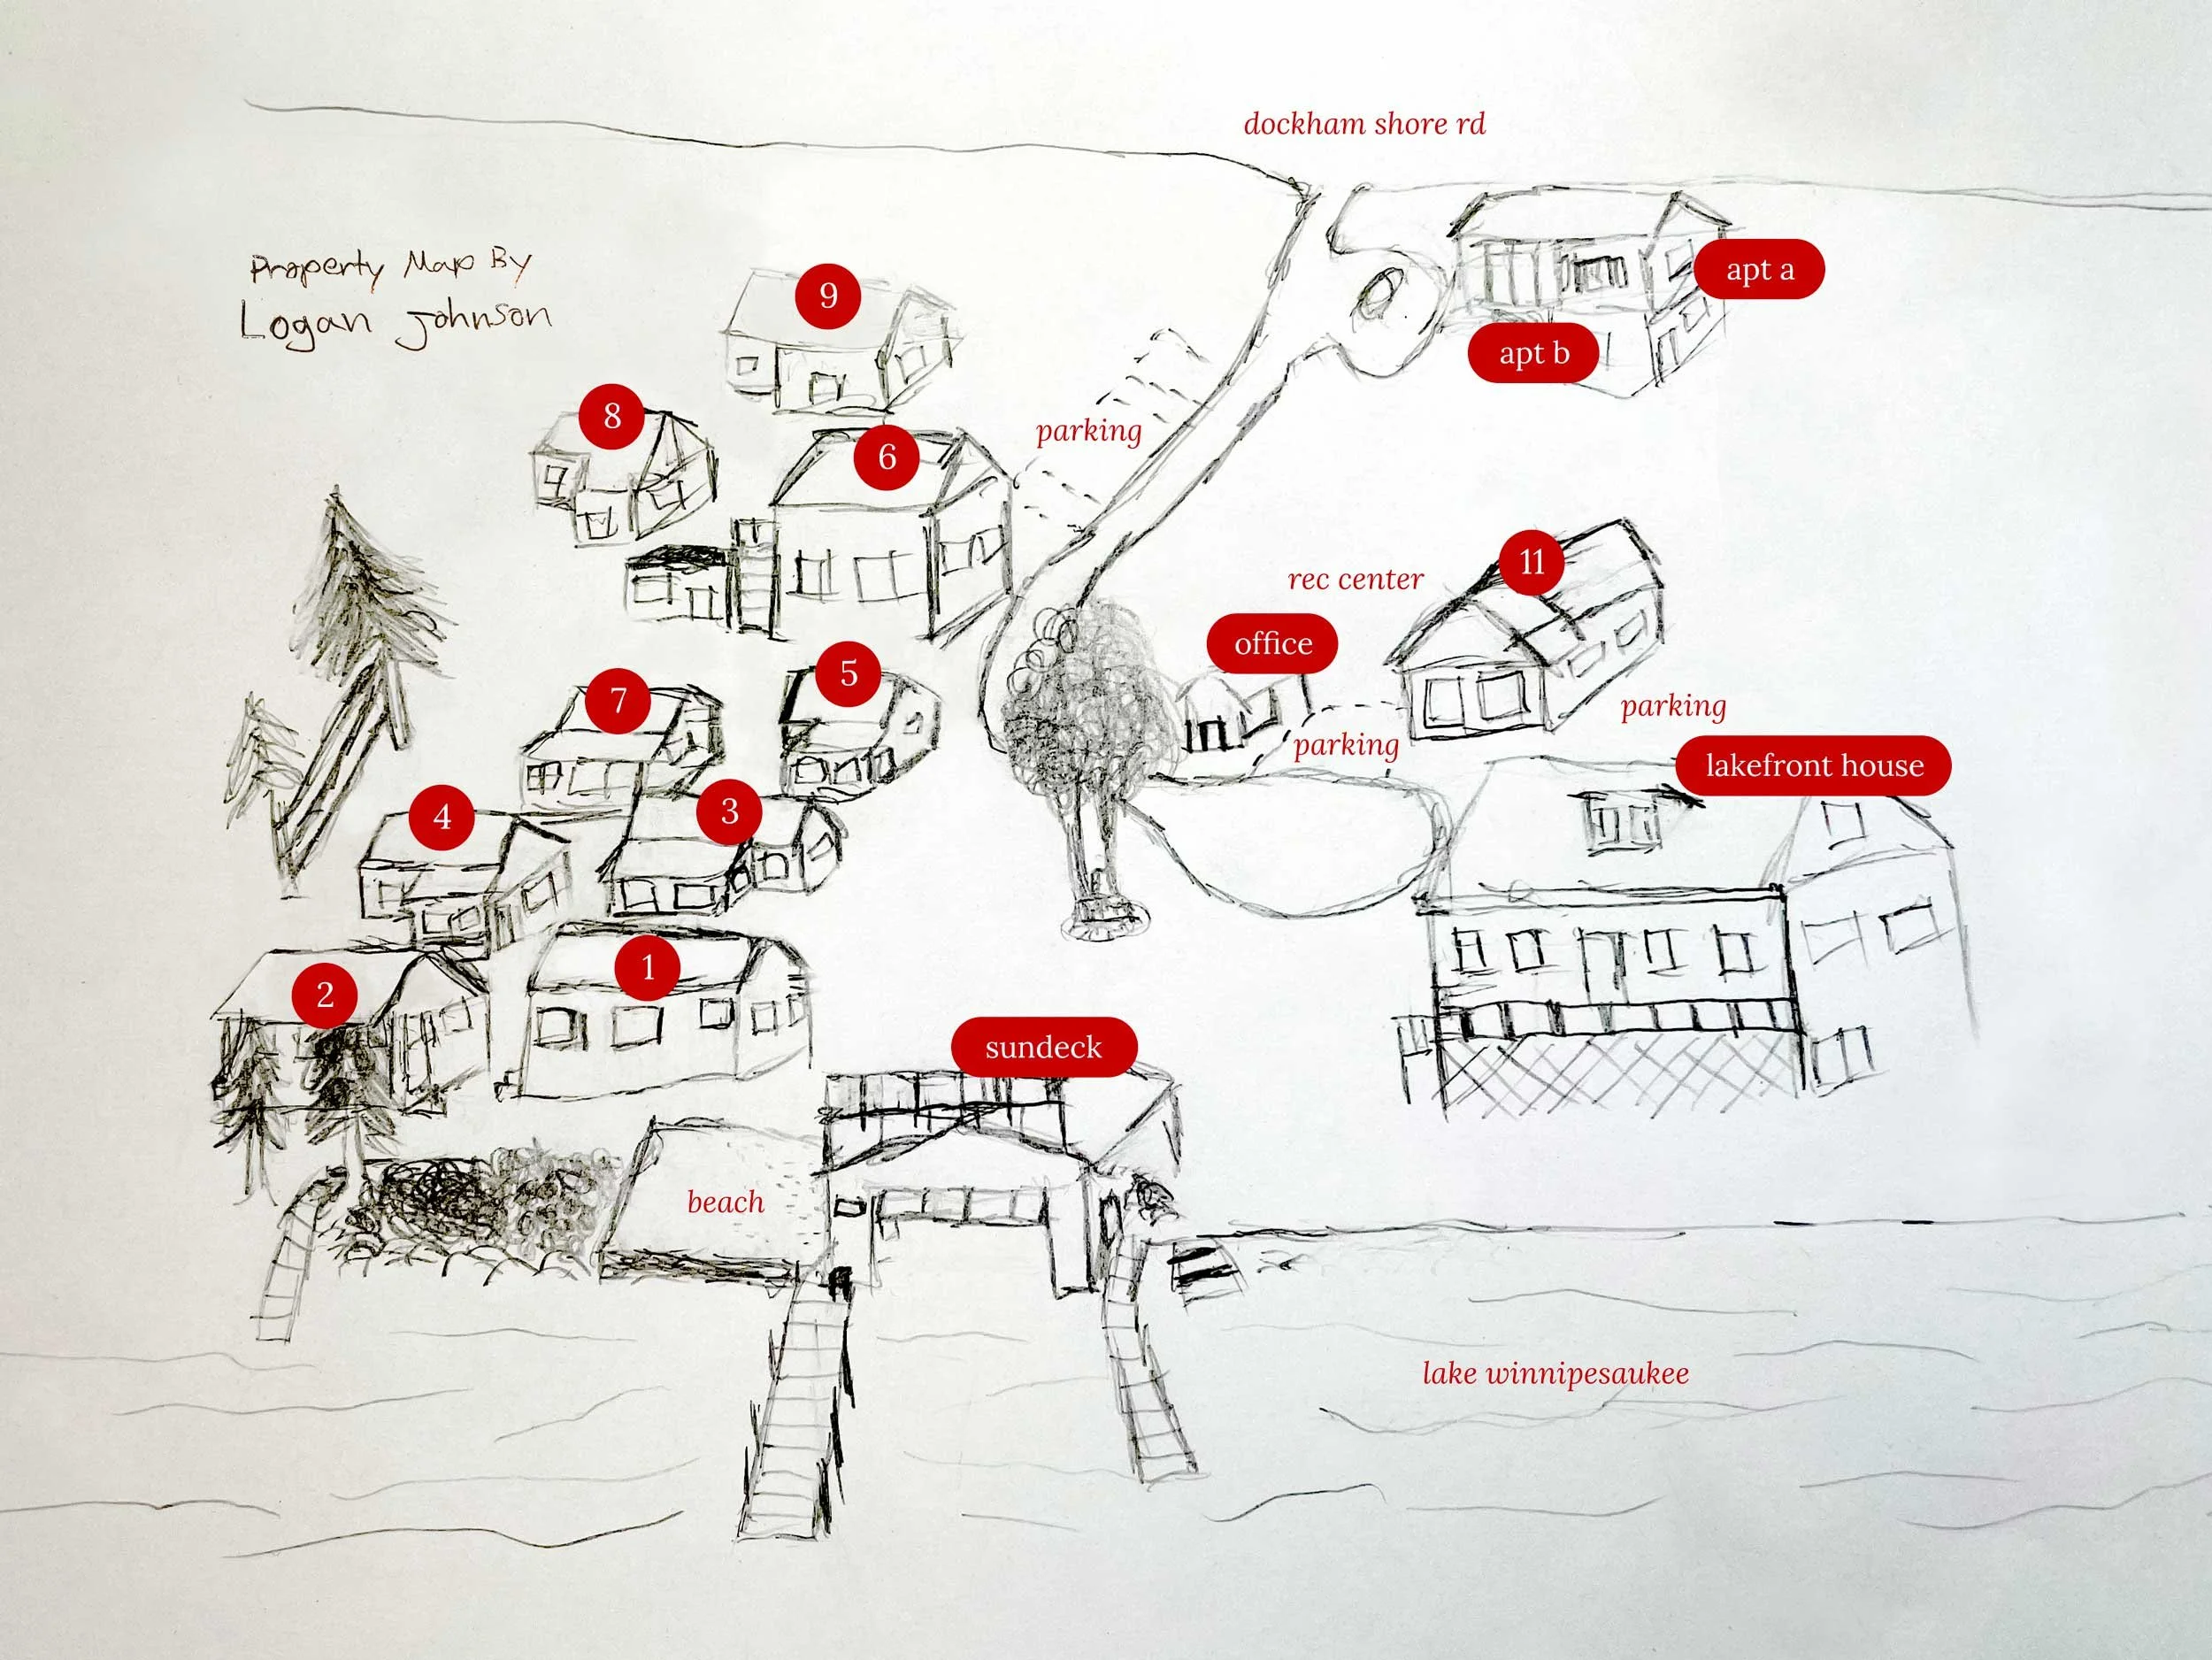 dockham shore rd
Property Map By
Logan Johnson
apt a
9
apt b
8
6
parking
11
rec center
office
5
7
parking
parking
lakefront house
4
3
1
2
sundeck
beach
lake winnipesaukee